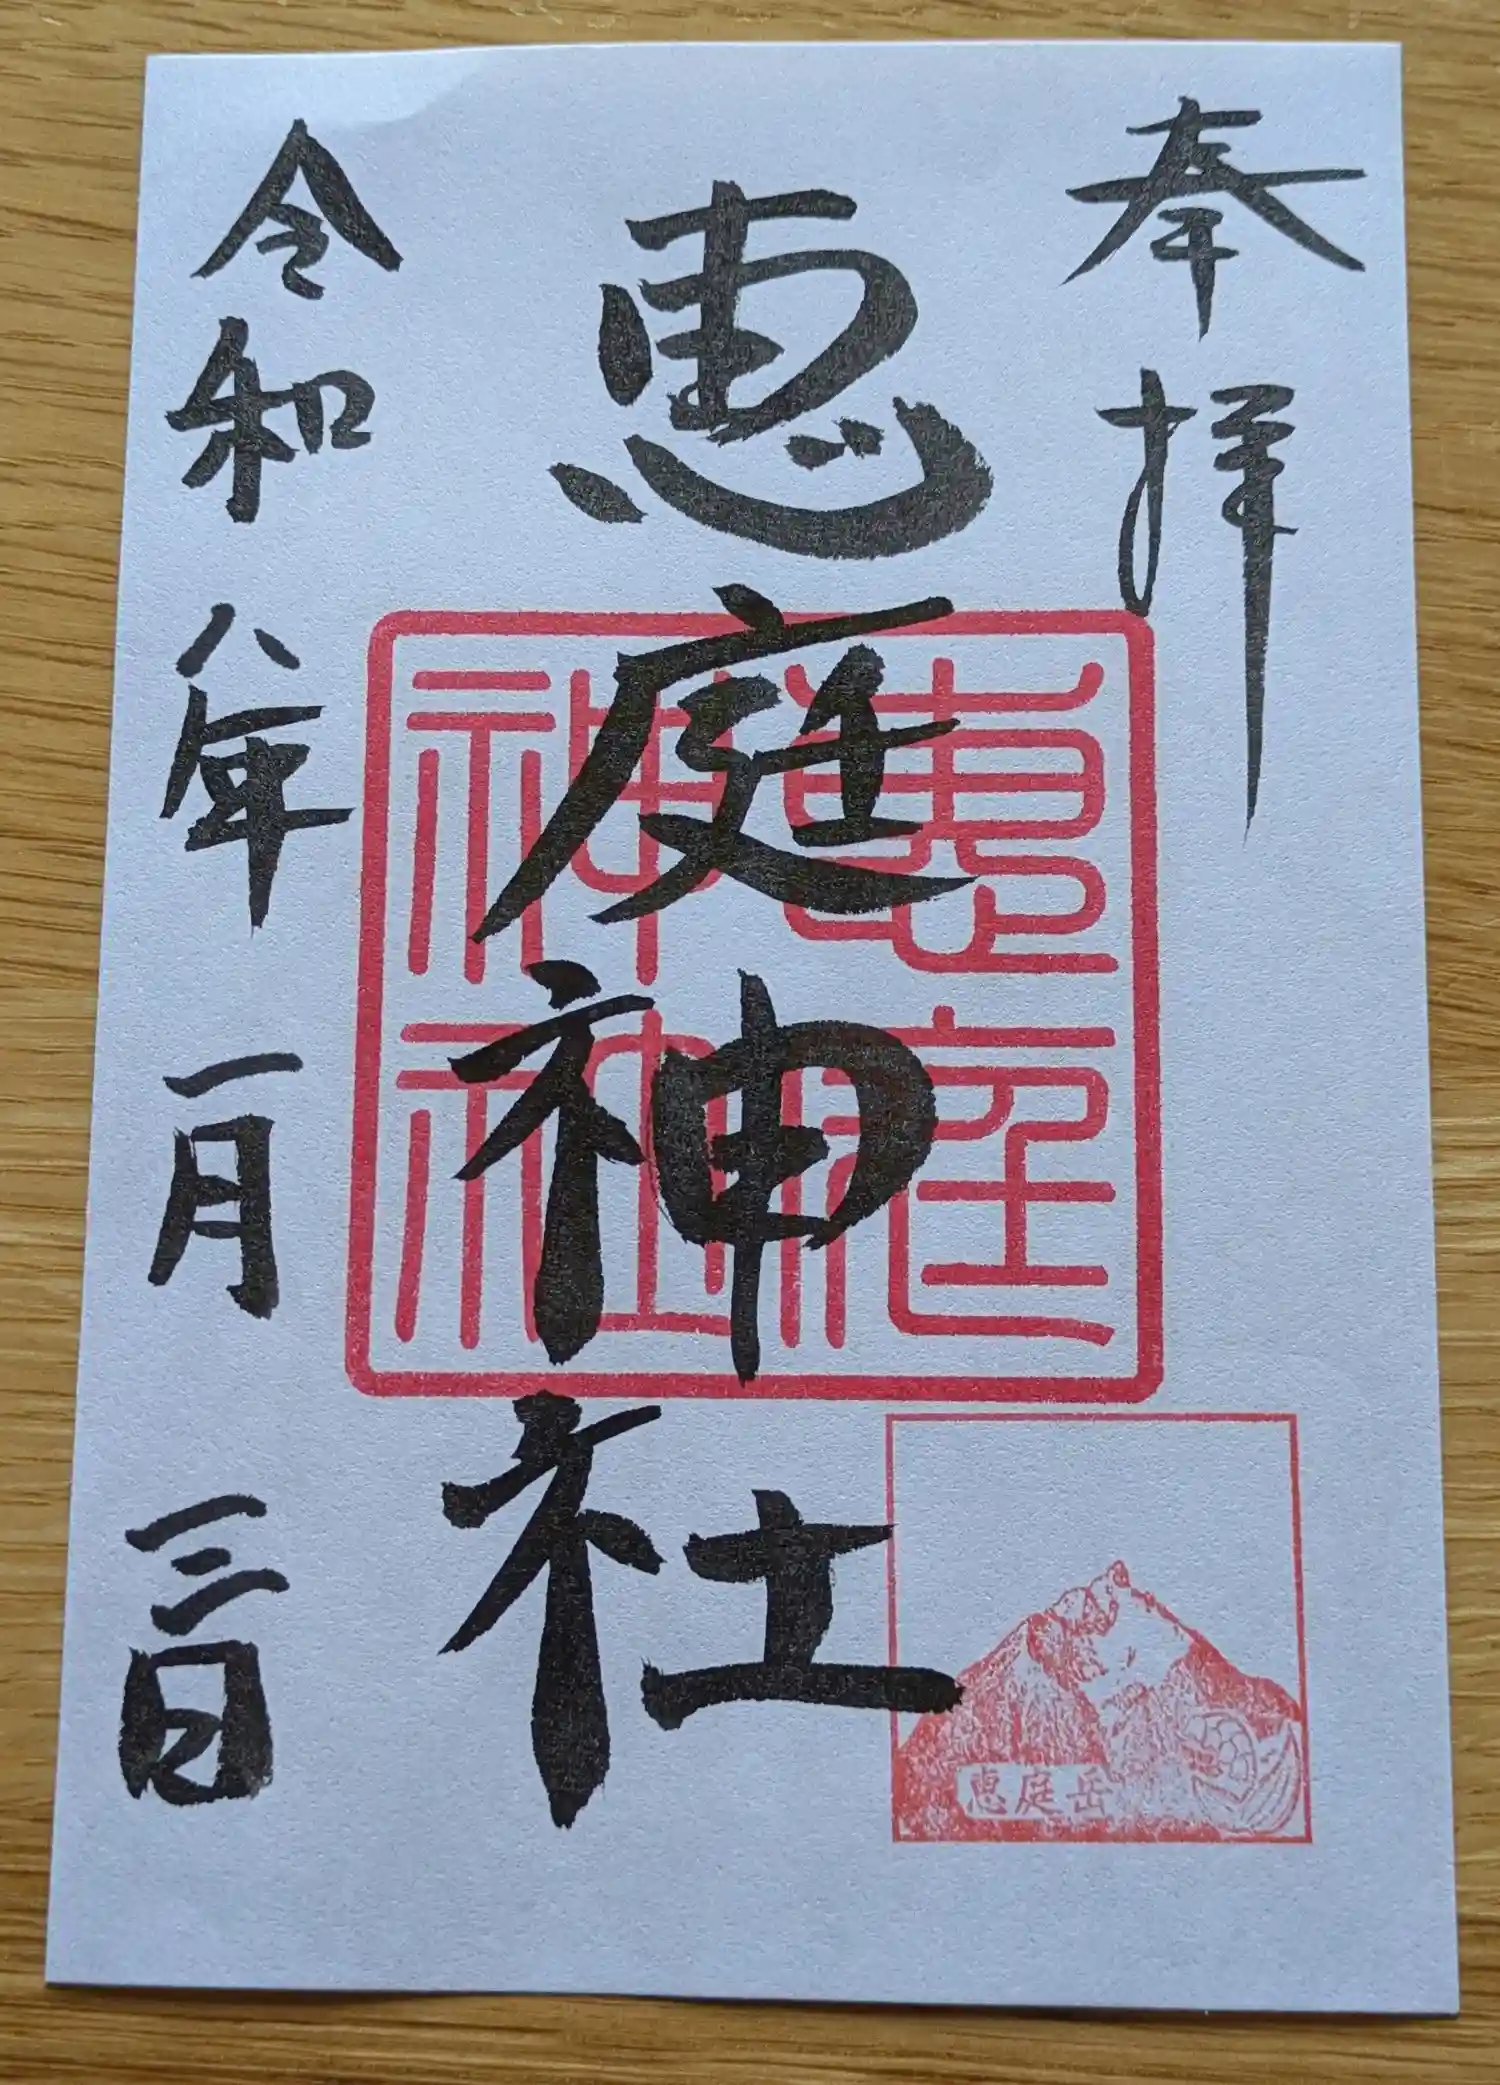 奉拝
恵庭神社
恵庭神社
恵庭岳
令和八年一月三日